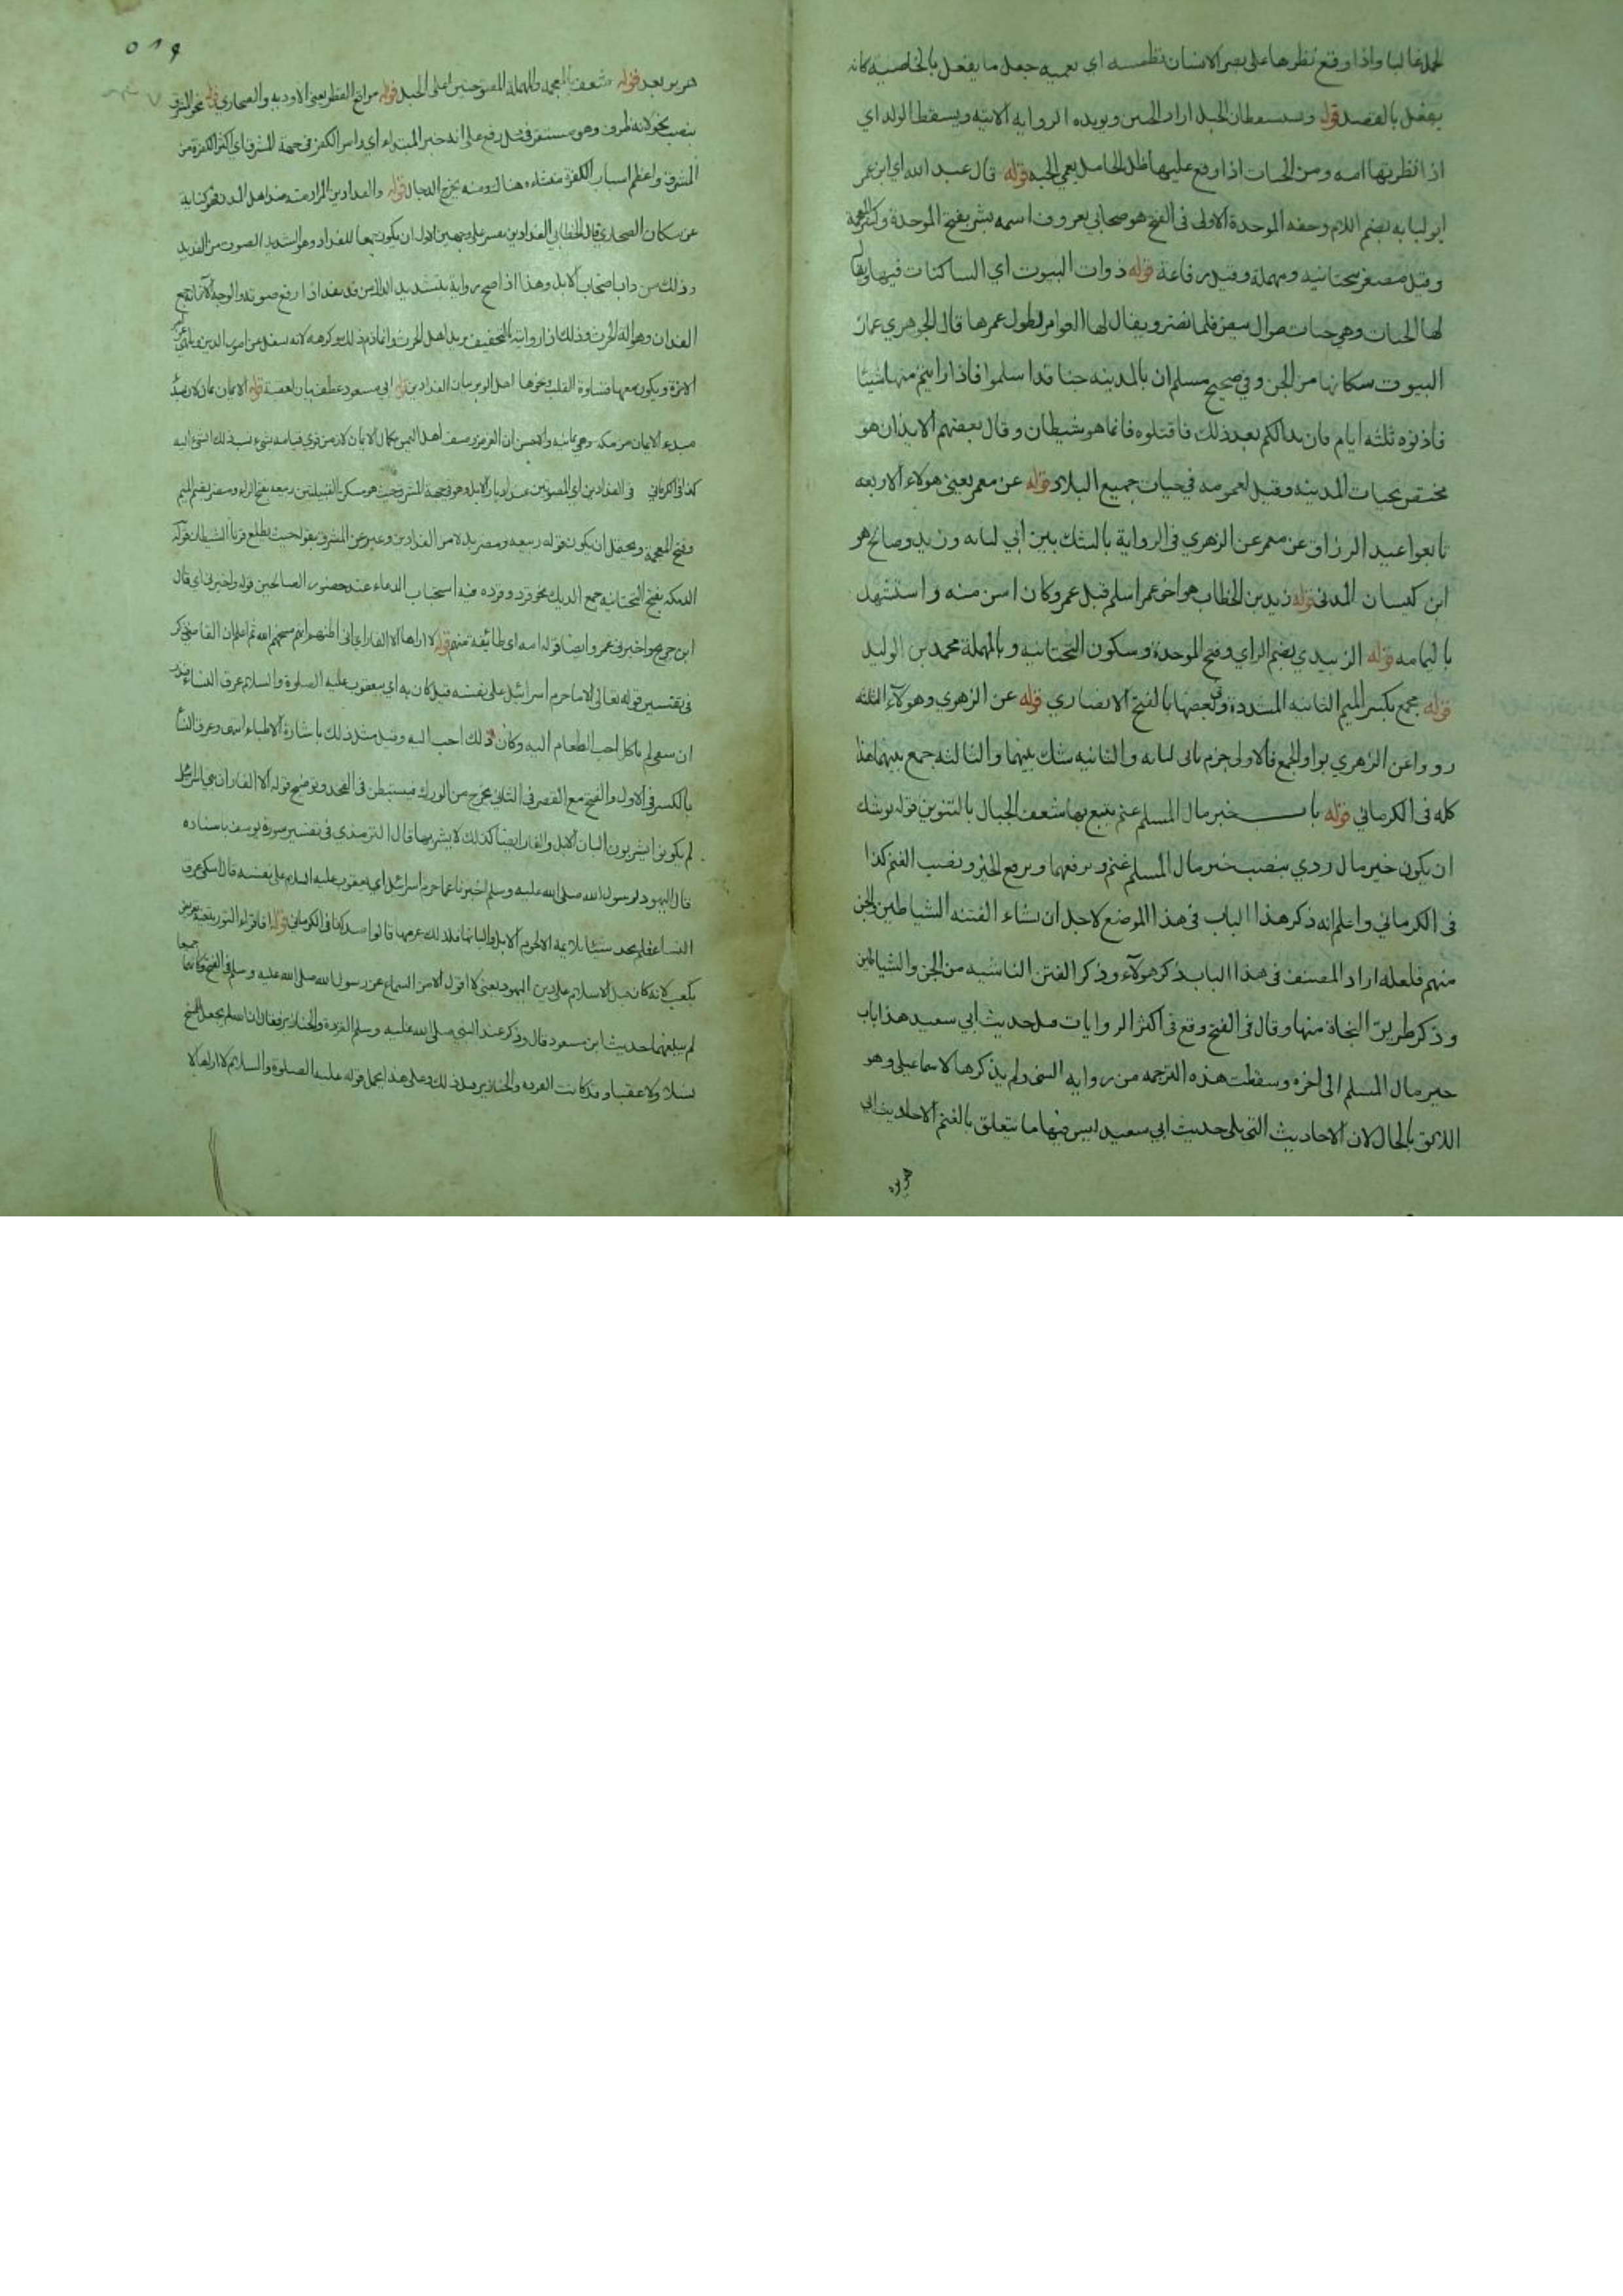 الحمل غالبا واذا وقع نظرها على بصر الانسان تطمسه اي تعميه جعل ما يفعل بالخاصيه كانه
يفعل بالقصد قوله ويستسقطان الحبل اراد الجنين ويويده الروايه الاتيه ويسقط الولد اي
اذا نظر بها امه ومن الحيات اذا وقع عليها ظل الحامل يعمي الحيه قوله قال عبد الله اي ابن عمر
ابو لبابه بضم اللام وخفه الموحدة الاولى فى الفتح هو صحابي معروف اسمه بشر بفتح الموحدة وكسر المعجمة
وقيل مصغر بتحتانيه ومهملة وقيل رفاعة قوله ذوات البيوت اي الساكنات فيها ويقال
لها الحيات وهي حيات طوال بيض قلما تضر ويقال لها العوامر لطول عمرها قال الجوهري عمار
البيوت سكانها من الجن وفي صحيح مسلم ان بالمدينه جنا قد اسلموا فاذا رايتم منها شيئا
فاذنوه ثلثه ايام فان بدا لكم بعد ذلك فاقتلوه فانما هو شيطان وقال بعضهم الايذان هو
مختص بحيات المدينه وقيل لعمومه في حيات جميع البلاد قوله عن معمر يعني هولاء الاربعه
تابعوا عبد الرزاق عن معمر عن الزهري فى الرواية بالشك بين ابي لبابه وزيد وصالح هو
ابن كيسان المدنى قوله زيد بن الخطاب هو اخو عمر اسلم قبل عمر وكان اسن منه واستشهد
باليمامه قوله الزبيدي بضم الزاي وفتح الموحدة وسكون التحتانيه وبالمهملة محمد بن الوليد
قوله مجمع بكسر الميم الثانيه المشددة وفى بعضها بالفتح الانصاري قوله عن الزهري وهولاء الثلثه
رووا عن الزهري بواو الجمع فالاولى جزم بابى لبابه والثانيه شك بينهما والثالثه جمع بينهما هذا
كله فى الكرماني قوله باب خير مال المسلم غنم يتبع بها شعف الجبال بالتنوين قوله يوشك
ان يكون خير مال روي بنصب خير مال المسلم غنم وبرفعهما وبرفع الخير ونصب الغنم كذا
فى الكرماني واعلم انه ذكر هذا الباب فى هذا الموضع لاجل ان نشاء الفتنه الشياطين والجن
منهم فلعله اراد المصنف فى هذا الباب ذكر هولاء وذكر الفتن الناشيه من الجن والشياطين
وذكر طريق النجاة منها وقال فى الفتح وقع فى اكثر الروايات قبل حديث ابي سعيد هذا باب
خير مال المسلم الى اخره وسقطت هذه الترجمه من روايه النسفى ولم يذكرها الاسماعيلى وهو
اللائق بالحال لان الاحاديث التى تلى حديث ابي سعيد ليس فيها ما يتعلق بالغنم الا حديث ابي
هريره
هريره بعد قوله شعف بالمعجمه والمهملة المفتوحتين اعلى الجبل قوله مواقع القطر يعنى الاوديه والصحاري قوله نحو المشرق
بنصب نحو لانه ظرف وهو مستقر فى محل رفع على انه خبر المبتداء اي راس الكفر فى جهة المشرق اي اكثر الكفرة من
المشرق واعظم اسباب الكفر منشاه هنالك ومنه يخرج الدجال قوله والفدادين المراد منه
عن سكان الصحاري قال الخطابي الفدادين يفسر على وجهين الاول ان يكون جمعا للفداد وهو الشديد الصوت من الفديد
وذلك من داب اصحاب الابل وهذا اذا صح رواية بتشديد الدال من فد يفد اذا رفع صوته والوجه الاخر انه جمع
الفدان وهو اله الحرث وذلك اذا روايته بالتخفيف يريد اهل الحرث وانما ذم ذلك وكرهه لانه يشغل عن امر الدين ويلهي عن امر
الاخرة ويكون معها قساوة القلب ونحوها اهل الوبر بيان الفدادين قوله ابي مسعود عطف بيان لعقبة قوله الايمان يمان لان
مبدء الايمان من مكه وهي يمانيه
كذا فى الكرماني فى الفدادين اي المصوتين عند ادبار الابل وهو فى جهة المشرق حيث هو مسكن القبيلتين ربيعه بفتح الراء ومضر بضم الميم
وفتح المعجمة ويحتمل ان يكون قوله ربيعه ومضر بدلا من الفدادين وعبر عن المشرق بقوله حيث يطلع قرنا الشيطان قوله
الديكه بفتح التحتانيه جمع الديك نحو قرد وقرده فيه استحباب الدعاء عند حضور الصالحين قوله واخبرنى اي قال
ابن جريج واخبرنى عمرو ايضا قوله امه اي طائفة منهم قوله لا اراها الا الفار اي انى اظنهم انهم مسخهم الله ثم اعلم ان القاضى ذكر
فى تفسير قوله تعالى الا ما حرم اسرائيل على نفسه قيل كان به اي بيعقوب عليه الصلوة والسلام عرق النساء فنذر
ان شفي لم ياكل احب الطعام اليه وكان ذلك احب اليه وقيل مثل ذلك باشارة الاطباء انتهى وعرق النسا
بالكسر فى الاول والفتح مع القصر فى الثانى يخرج من الورك فيستبطن فى الفخد وتوضيح قوله الا الفار ان بني اسرائيل
لم يكونوا يشربون البان الابل والفار ايضا كذلك لا يشربها قال الترمذي فى تفسير سورة يوسف باسناده
قال اليهود لرسول الله صلى الله عليه وسلم اخبرنا عما حرم اسرائيل اي يعقوب عليه السلام على نفسه قال اشتكى عرق
النسا فلم يجد شيئا يلائمه الا لحوم الابل والبانها فلذلك حرمها قالوا صدقت كذا فى الكرماني قوله افاقراء التورية فيه تعريض
بكعب لانه كان قبل الاسلام على دين اليهود يعنى لا اقول الا من السماع عن رسول الله صلى الله عليه وسلم فى الفتح وكانهما جميعا
لم يبلغهما حديث ابن مسعود قال وذكر عند النبي صلى الله عليه وسلم القردة والخنازير فقال ان الله لم يجعل للمسخ
نسلا ولا عقبا وقد كانت القردة والخنازير قبل ذلك وعلى هذا يحمل قوله عليه الصلوة والسلام لا اراها الا